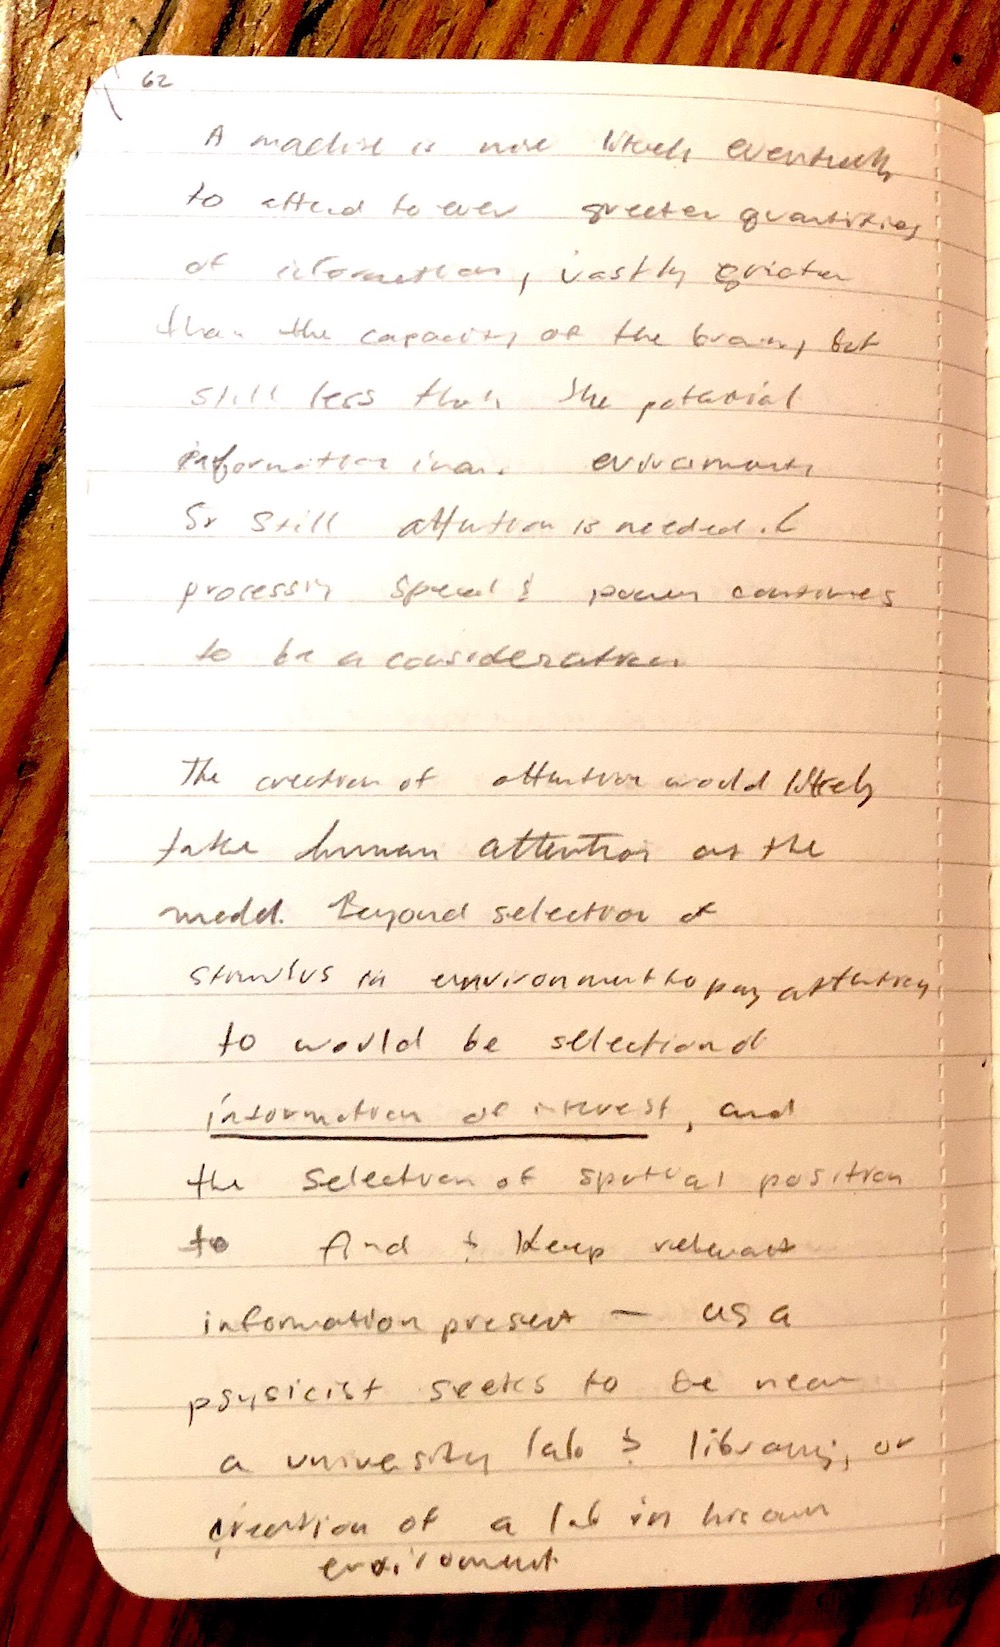 62
A machine is more likely eventually
to attend to ever greater quantities
of information, vastly greater
than the capacity of the brain, but
still less than the potential
information in an environment,
So still attention is needed. &
processing speed & power continues
to be a consideration
The creation of attention would likely
take human attention as the
model. Beyond selection of
stimulus in environment to pay attention
to would be selection of
information of interest, and
the selection of spatial position
to find & keep relevant
information present — as a
psysicist seeks to be near
a university lab & library, or
creation of a lab in his own
enviroment